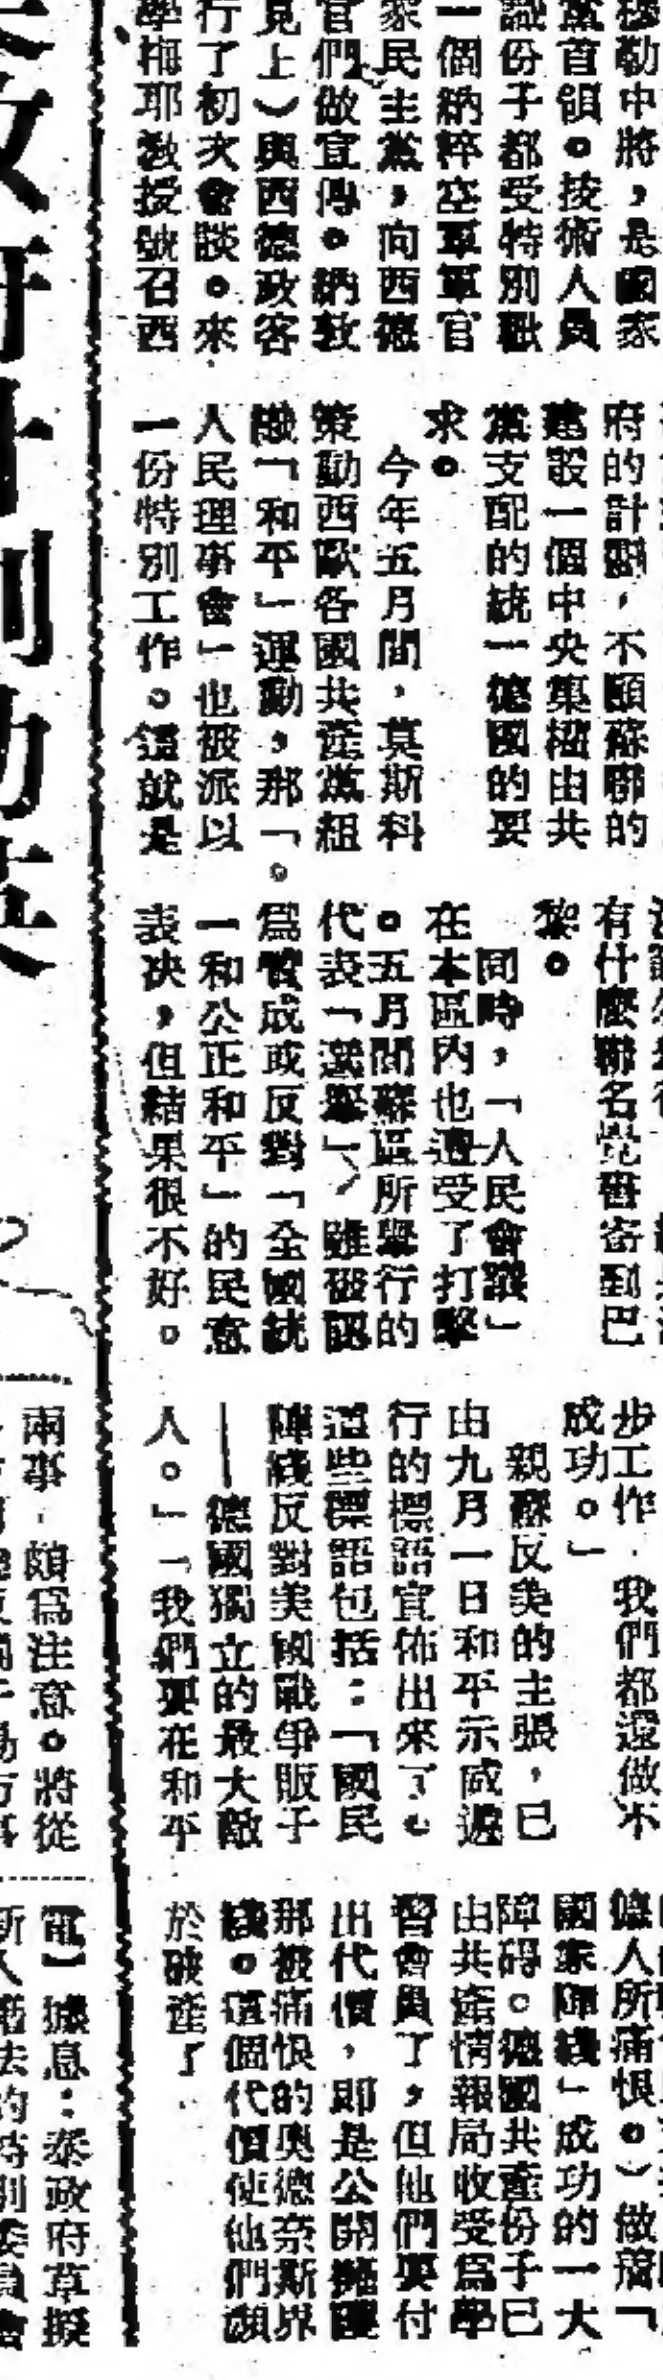 穆勒中將，是國家
黨首領。技術人員
識份子都受特別歡
一個納粹空軍軍官
家民主黨，向西德
官們做宣傳。納敦
見上）與西德政客
行了初次會談。來
學梅耶教授號召西
府的計劃，不顧蘇聯的
建設一個中央集權由共
黨支配的統一德國的要
求。
今年五月間，莫斯科
策動西歐各國共產黨組
織「和平」運動，那「
人民理事會」也被派以
一份特別工作。這就是
有什麼聯名覺書寄到巴
黎。
同時，「人民會議」
在本區內也遭受了打擊
。五月間蘇區所舉行的
代表「選舉」，雖被認
爲贊成或反對「全國統
一和公正和平」的民意
表决，但結果很不好。
步工作．我們都還做不
成功。」
親蘇反美的主張，已
由九月一日和平示威遊
行的標語宣佈出來了。
這些標語包括：「國民
陣綫反對美國戰爭販子
——德國獨立的最大敵
人。」「我們要在和平
德人所痛恨。）做爲「
國家陣綫」成功的一大
障碍。德國共產份子已
由共產情報局收受爲學
習會員了，但他們要付
出代價，即是公開擁護
那被痛恨的奥德奈斯界
綫。這個代價使他們瀕
於破產了．
兩事．頗爲注意。將從
電】據息：泰政府草擬